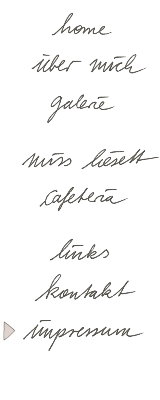 home
über mich
galerie
miss liesett
cafeteria
links
kontakt
impressum